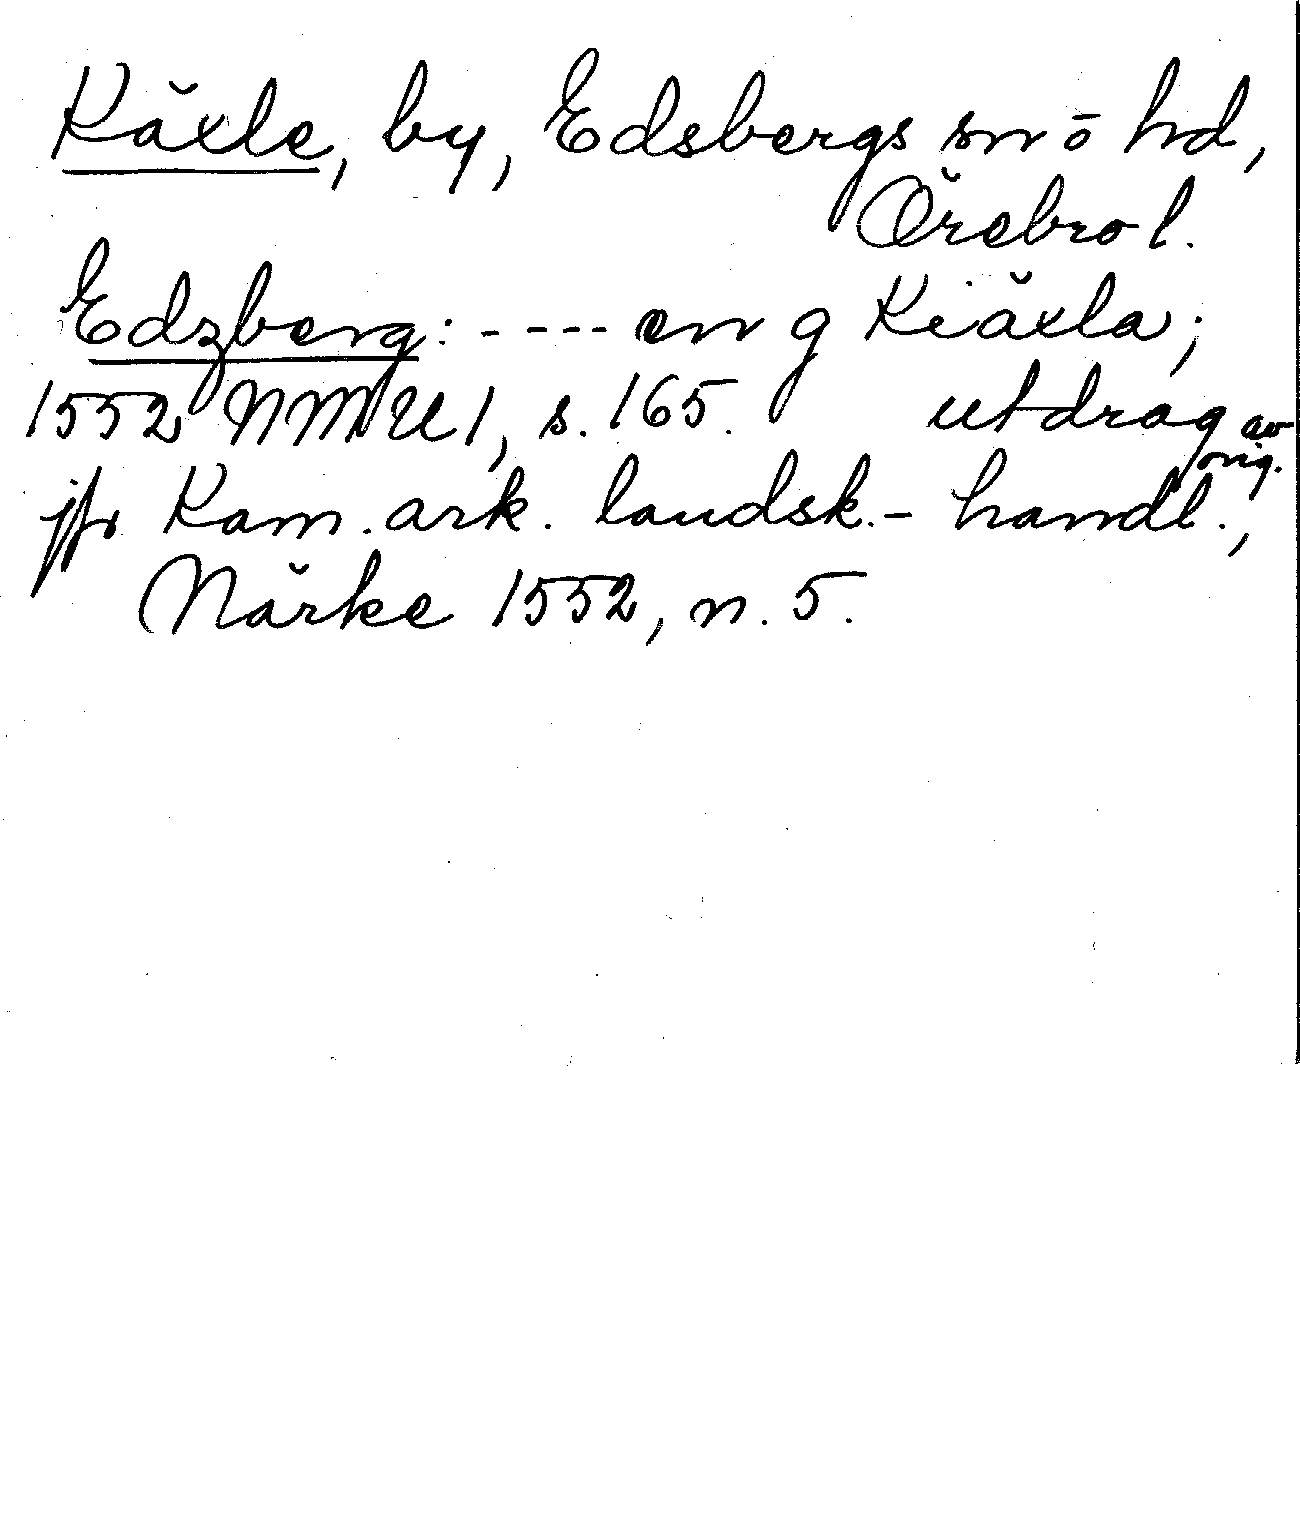 Käxle, by, Edsbergs sn o hd,
Örebro l.
Edzberg: - - - - en g Kiäxla;
1552 NMU 1, s. 165. utdrag av orig.
jfr Kam. ark. landsk.- handl.,
Närke 1552, n. 5.